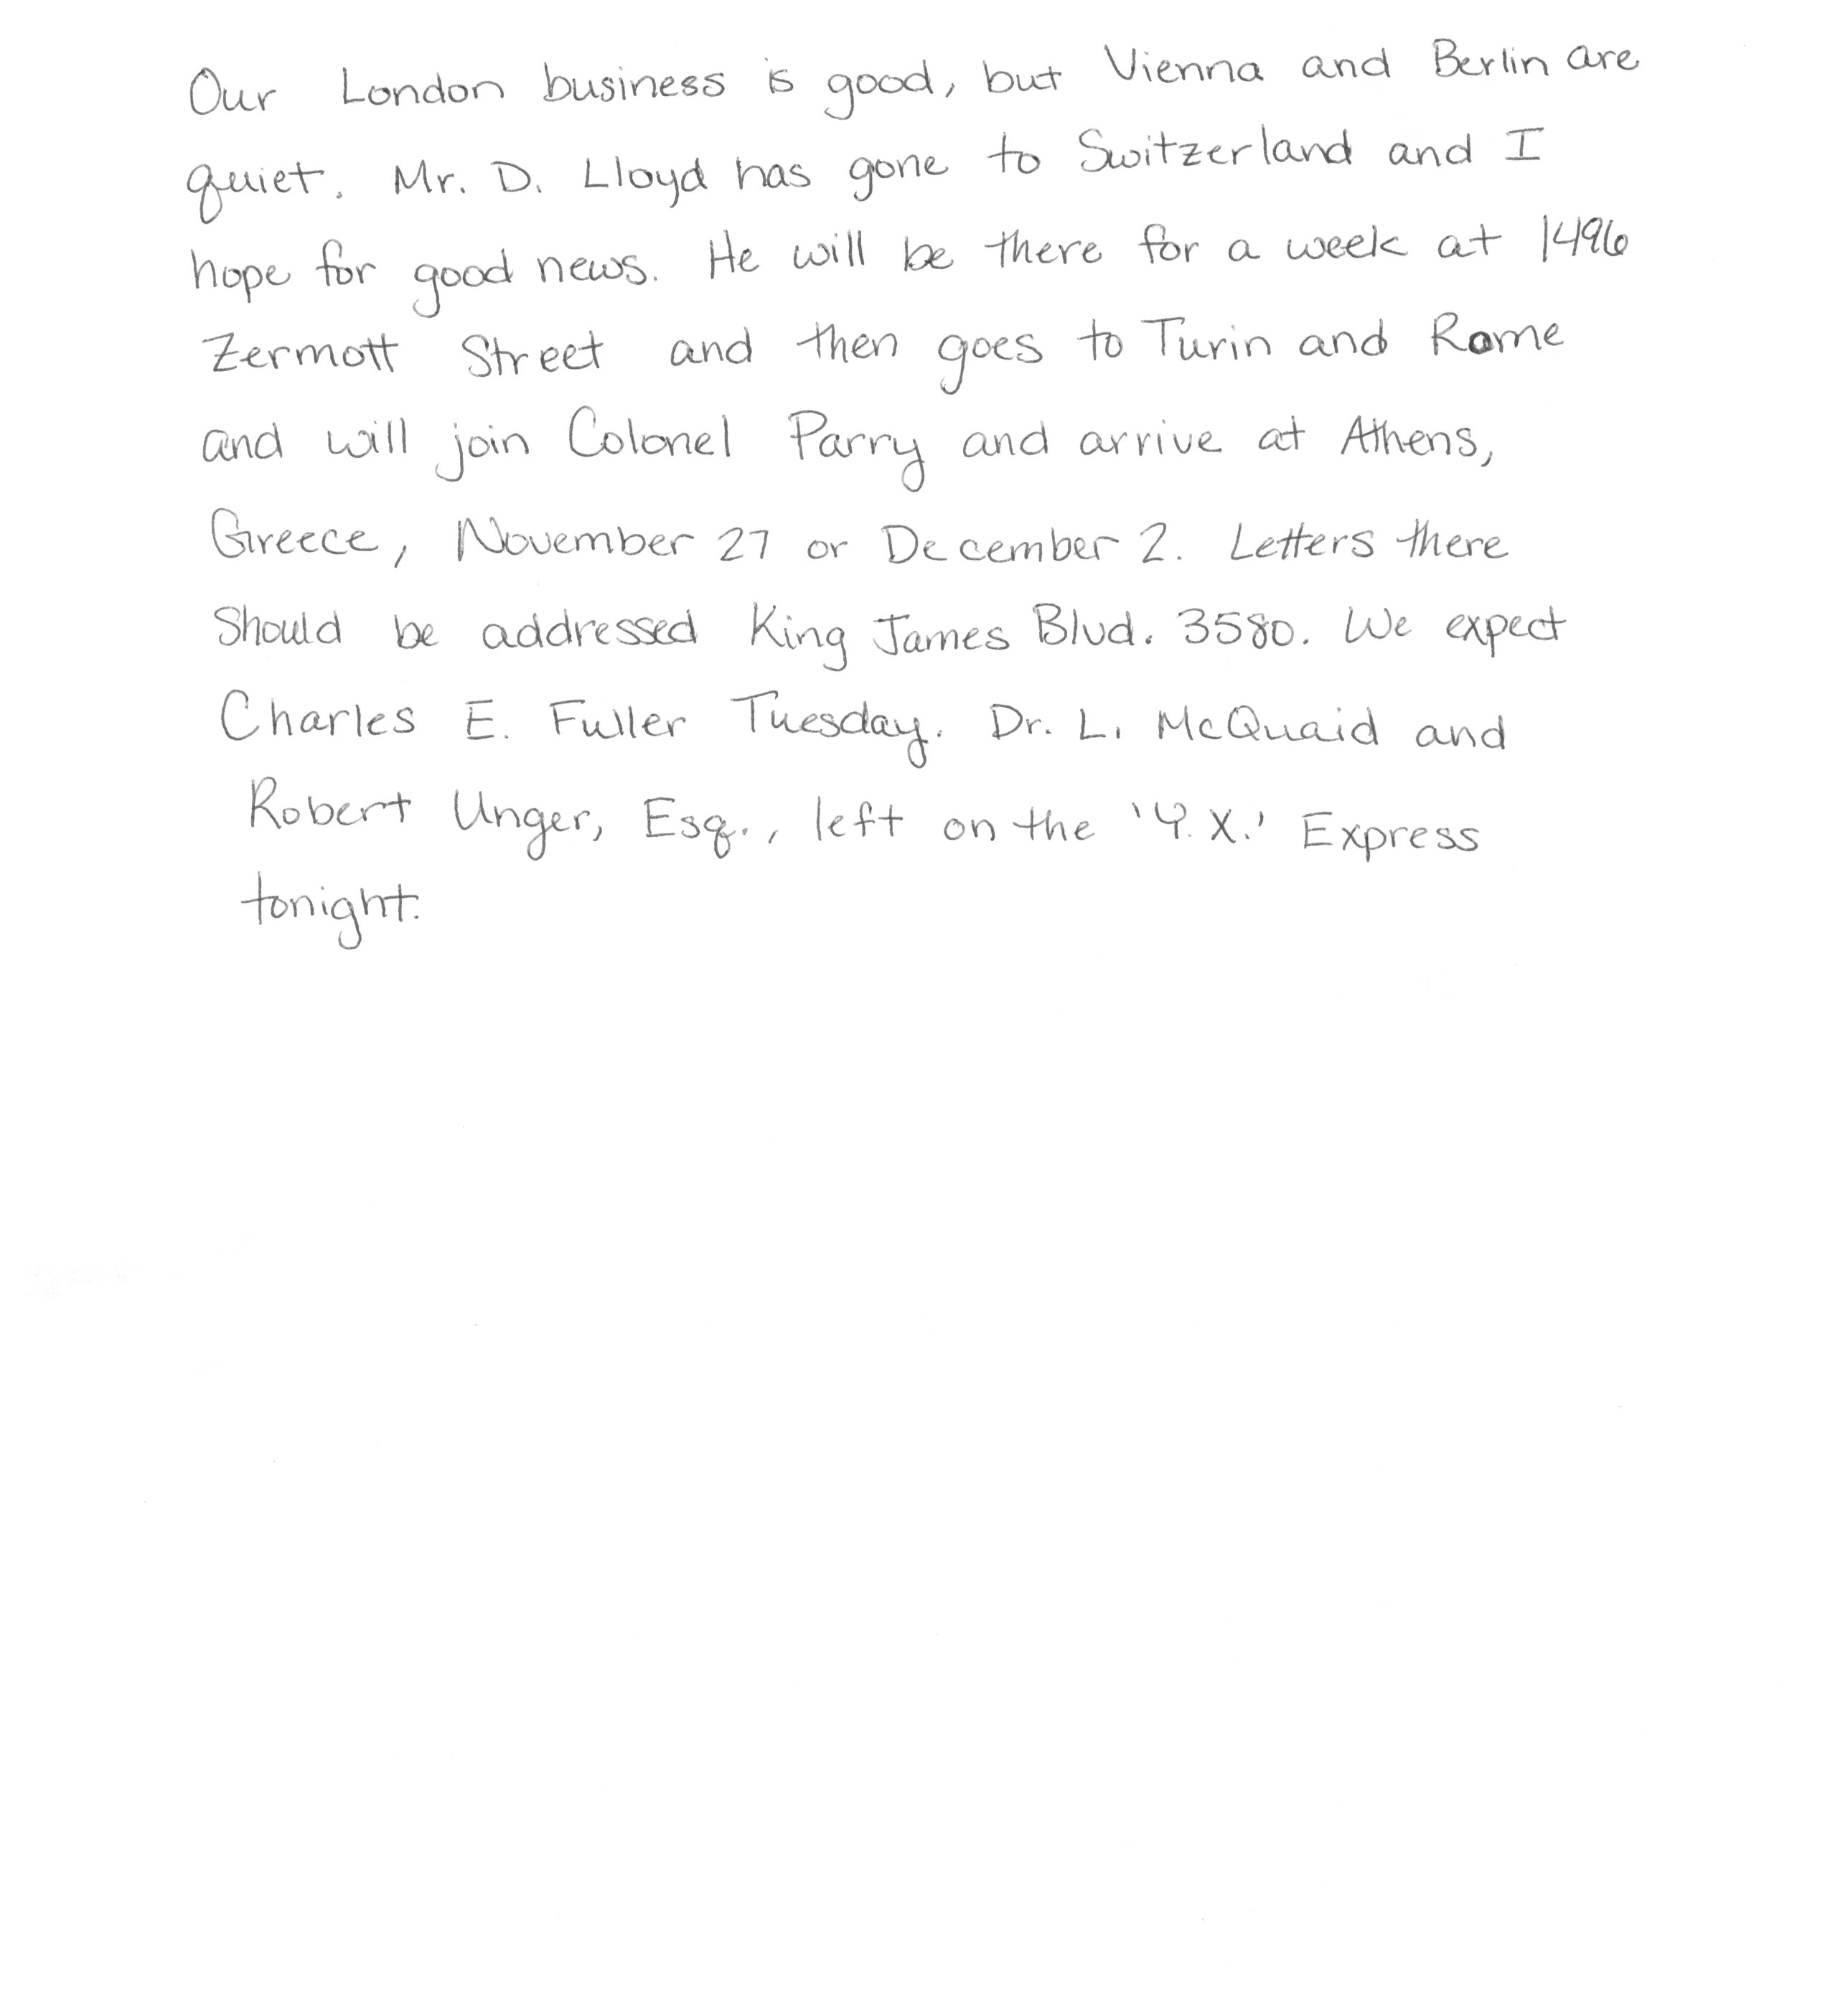 Our London business is good, but Vienna and Berlin are
quiet. Mr. D. Lloyd has gone to Switzerland and I
hope for good news. He will be there for a week at 1496
Zermott Street and then goes to Turin and Rome
and will join Colonel Parry and arrive at Athens,
Greece, November 27 or December 2. Letters there
Should be addressed King James Blvd. 3580. We expect
Charles E. Fuller Tuesday. Dr. L. McQuaid and
Robert Unger, Esq., left on the 'Y.X.' Express
tonight.